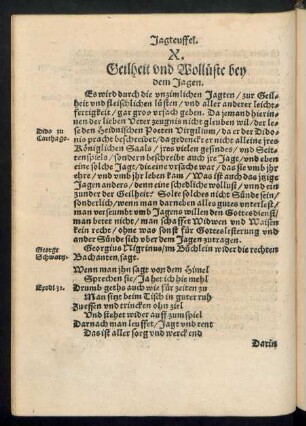 Jagteuffel.
X.
Geilheit vnd Wollüste bey
dem Jagen.
Es wird durch die vnzimlichen Jagten / zur Geil-
heit vnd fleischlichen lüsten / vnd aller anderer leicht-
fertigkeit / gar gros vrsach geben. Da jemand hierin-
nen der lieben Veter zeugnis nicht gleuben wil / der le-
se den Heidnischen Poeten Virgilium / da er der Dido-
Dido zu
nis pracht beschreibet / da gedencket er nicht alleine jres
Carthago.
Königlichen Saals / jres vielen gesindes / vnd Seit-
tenspiels / sondern beschreibt auch jre Jagt / vnd eben
eine solche Jagt / die eine vrsache war / das sie vmb jhr
ehre / vnd vmb jhr leben kam / Was ist auch das jzige
Jagen anders / denn eine schedliche wollust / vnnd ein
zunder der Geilheit: Solte solches nicht Sünde sein /
sonderlich / wenn man darneben alles gutes vnterlest /
man verseumet vmb Jagens willen den Gottesdienst /
man betet nicht / man schaffet Widwen vnd Waisen
kein recht / ohne was sonst für Gotteslesterung vnd
ander Sünde sich vber dem Jagen zutragen.
George
Georgius Nigrinus / im Büchlein wider die rechten
Schwartz.
Bachanten, sagt.
Wenn man jhn sagt von dem Himel
Sprechen sie / Ja het ich hie mehl
Exodi 32.
Drumb geths auch wie für zeiten zu
Man sitzt beim Tisch in guter ruh
Zu essen vnd trincken ohn ziel
Vnd stehet wider auff zum spiel
Darnach man leuffet / Jagt vnd rent
Das ist aller sorg vnd werck end
Darin